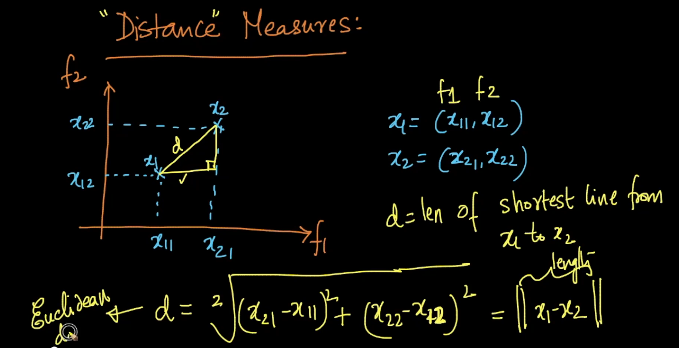 "Distance" Measures:
f2
x22
x2
d
x1
x12
x11 x21
f1
f1 f2
x1 = (x11, x12)
x2 = (x21, x22)
d = len of shortest line from
x1 to x2
length
Euclidean ← d = ²√(x21-x11)² + (x22-x12)² = ||x1-x2||